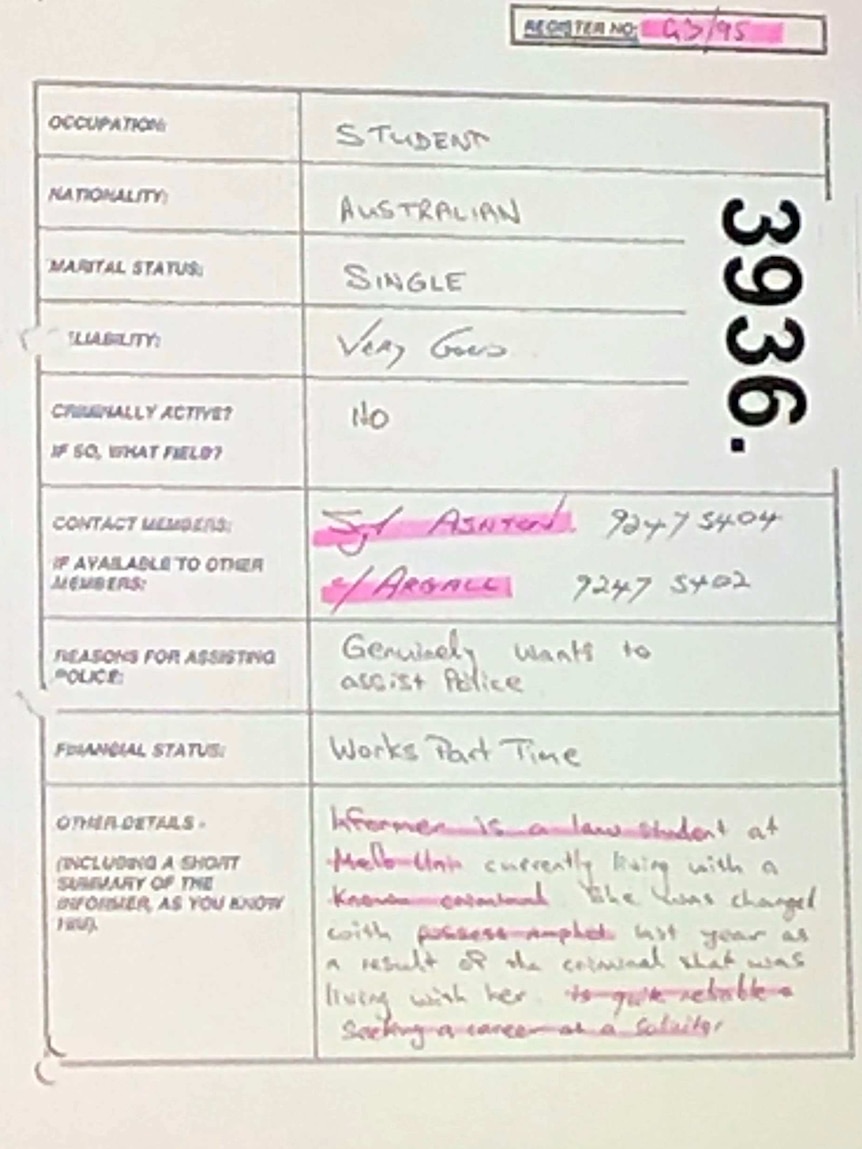 REGISTER NO: G3/95
OCCUPATION: STUDENT
NATIONALITY: AUSTRALIAN
MARITAL STATUS: SINGLE
3936.
LIABILITY: Very Good
CRIMINALLY ACTIVE? NO
IF SO, WHAT FIELD?
CONTACT MEMBERS: Sgt ASHTON 9247 5404
IF AVAILABLE TO OTHER
MEMBERS: c/ ARGALL 9247 5402
REASONS FOR ASSISTING
POLICE:
Genuinely wants to
assist Police
FINANCIAL STATUS: Works Part Time
OTHER DETAILS -
(INCLUDING A SHORT
SUMMARY OF THE
INFORMER, AS YOU KNOW
HIM).
Informer is a law student at
Melb Uni currently living with a
known criminal. She was charged
with possess amphet last year as
a result of the criminal that was
living with her. Is quite reliable &
Seeking a career as a Solicitor